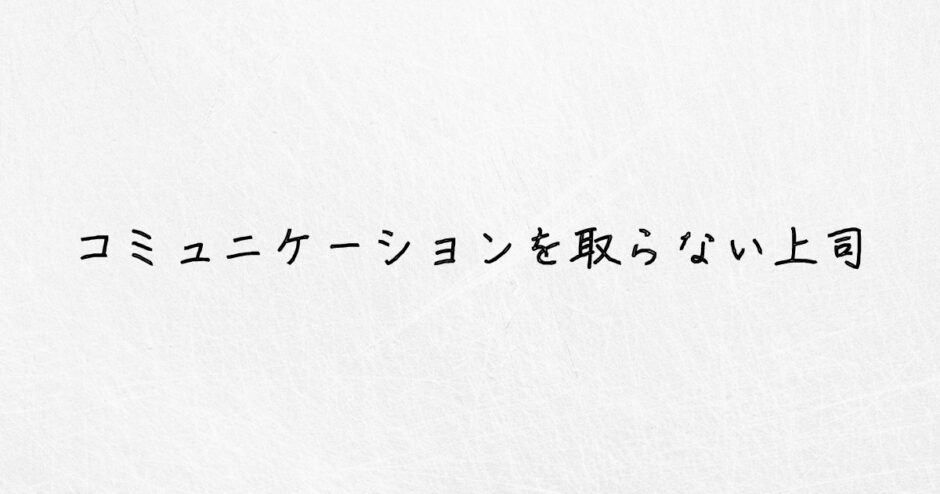 コミュニケーションを取らない上司